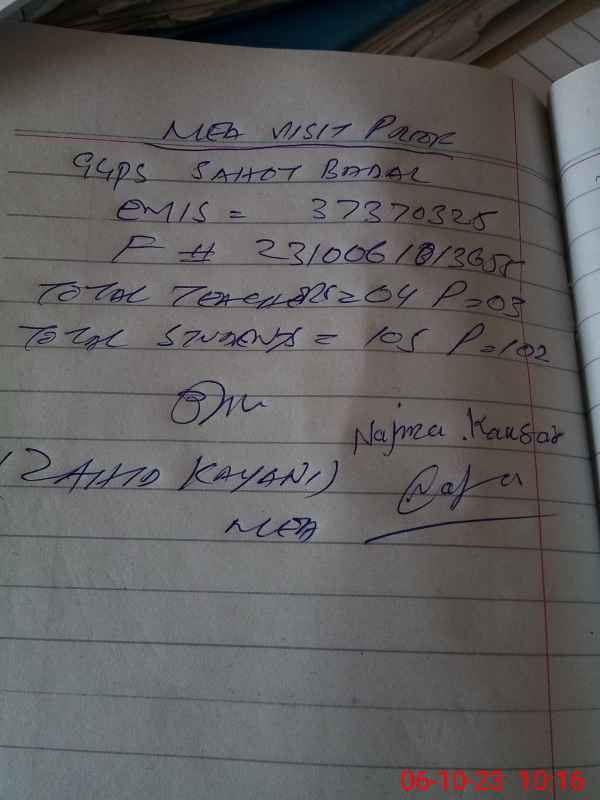 MEA VISIT Proof
GGPS SAHOT BADAL
EMIS = 37370325
F # 231006
TOTAL TEACHERS = 04 P = 03
TOTAL STUDENTS = 105 P = 102
Najma Kausar
(ZAHID KAYANI)
MEA
06-10-23 10:16